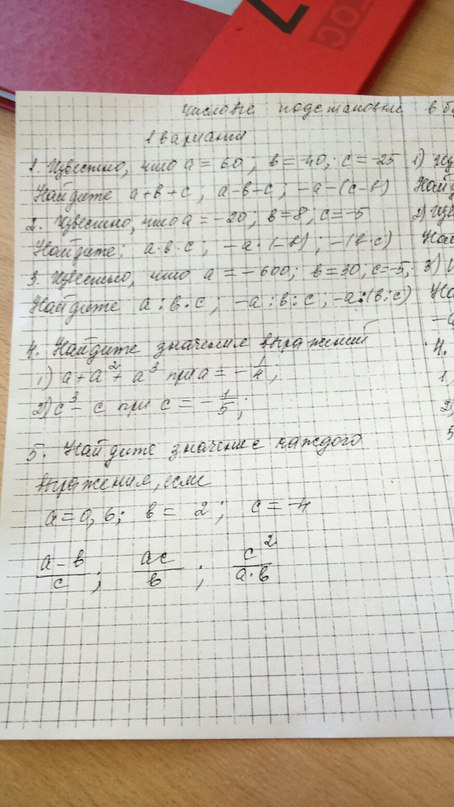 ОС
числовые подстановки в б
1 вариант
1. Известно, что a = 60; b = -40; c = -25
Найдите a + b + c; a - b - c; -a - (c - b)
2. Известно, что a = -20; b = 8, c = -5
Найдите: a·b·c; -a·(-b); -(b·c)
3. Известно, что a = -600; b = 30; c = -5;
Найдите a : b · c; -a : b : c; -a : (b : c)
4. Найдите значение выражений
1) a + a² + a³ при a = -1/4;
2) c³ - c при c = -1/5;
5. Найдите значение каждого
выражения, если
a = 0,6; b = 2; c = -4
(a - b)/c; ac/b; c²/(a·b)
1)
Найд
2)
Най
3)
4.
1.
2)
5